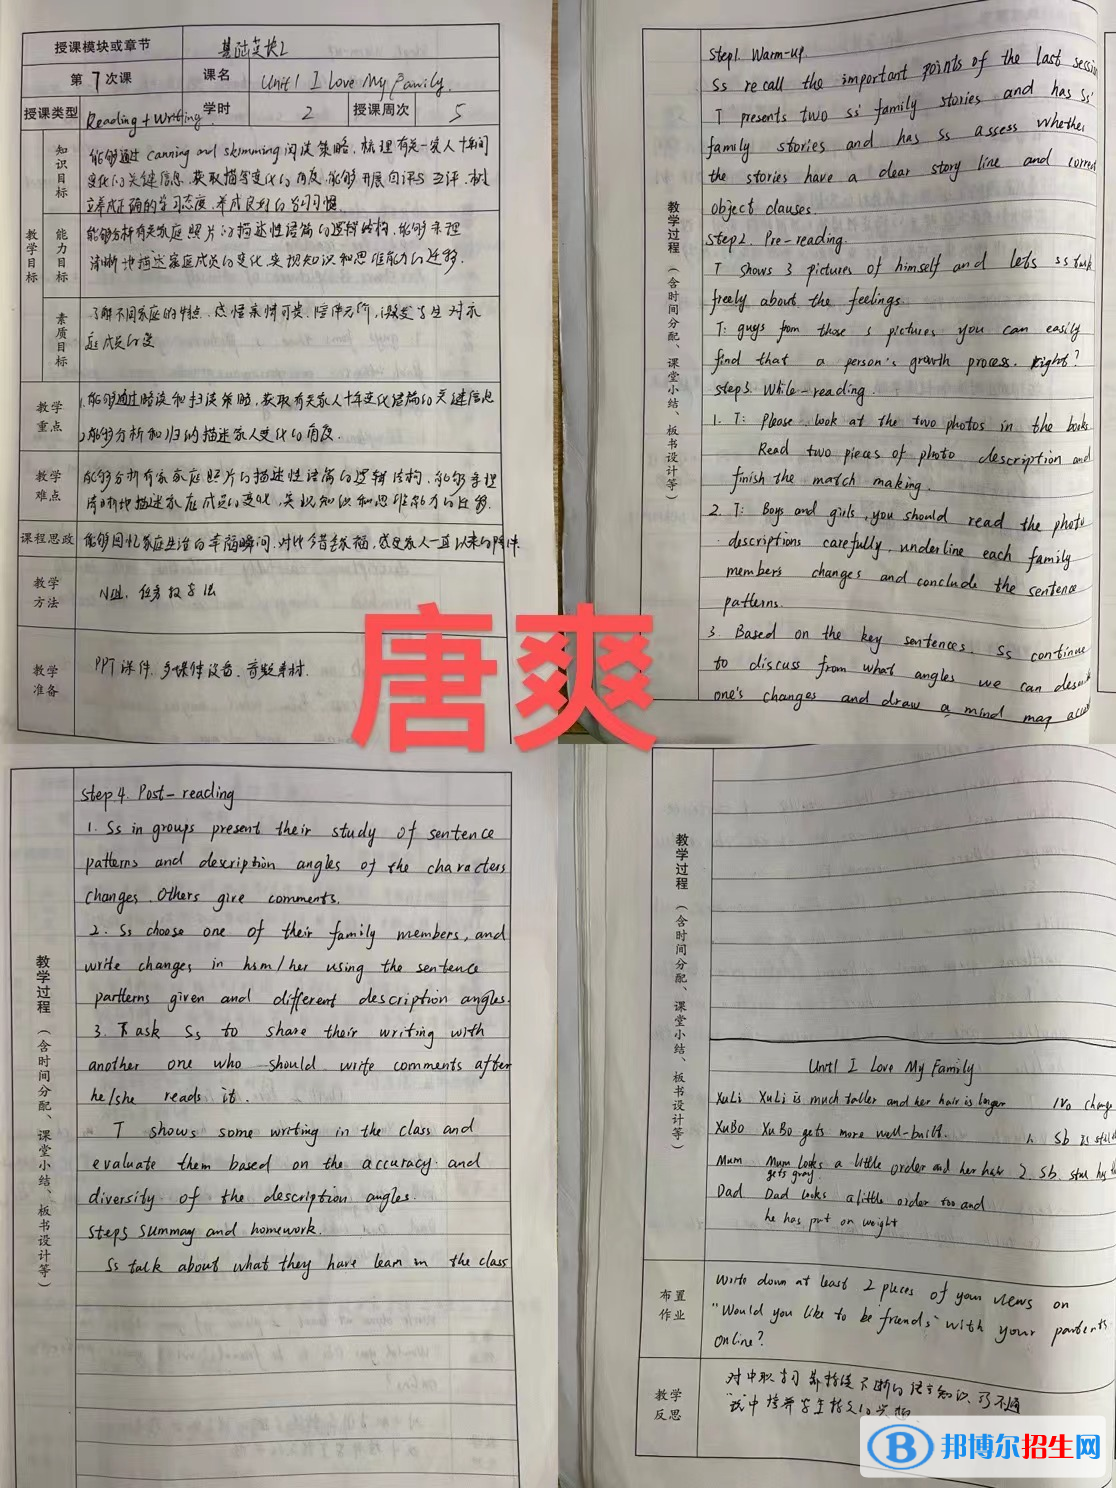 授课模块或章节 基础英块2
第7次课 课名 Unit1 I Love My Family.
授课类型 Reading + Writing 学时 2 授课周次 5
教学目标
知识目标
能够通过 canning and skimming 阅读策略，梳理有关一家人十年间
变化的关键信息，获取描写变化的角度，能够开展自评与互评，树
立养成正确的学习态度，养成良好的学习习惯。
能力目标
能够分析有关家庭照片的描述性语篇的逻辑结构，能够条理
清晰地描述家庭成员的变化，实现知识和思维能力的迁移.
素质目标
了解不同家庭的特点，感悟亲情可贵，陪伴无价，激发学生对家
庭成员的爱
教学重点
1.能够通过略读和扫读策略，获取有关家人十年变化语篇的关键信息
2.能够分析和归纳描述家人变化的角度.
教学难点
能够分析有关家庭照片的描述性语篇的逻辑结构，能够条理
清晰地描述家庭成员的变化，实现知识和思维能力的迁移.
课程思政 能够回忆家庭生活的幸福瞬间，对比今昔幸福，感受家人一直以来的陪伴.
教学方法 小组，任务教学法
教学准备 PPT课件，多媒体设备、音频素材.
教学过程（含时间分配、课堂小结、板书设计等）
Step1. Warm-up
Ss recall the important points of the last sessio
T presents two ss' family stories and has ss'
family stories and has ss assess whether
the stories have a clear story line and correct
object clauses.
Step2. Pre-reading.
T shows 3 pictures of himself and lets ss talk
freely about the feelings.
T: guys from those s pictures, you can easily
find that a person's growth process. Right?
step3. While-reading.
1. T: Please look at the two photos in the books
Read two pieces of photo description and
finish the match making.
2. T: Boys and girls, you should read the photo
descriptions carefully, underline each family
members changes and conclude the sentence
patterns.
3. Based on the key sentences, Ss continue
to discuss from what angles we can describ
one's changes and draw a mind map acco
唐爽
教学过程（含时间分配、课堂小结、板书设计等）
Step 4. Post-reading
1. Ss in groups present their study of sentence
patterns and description angles of the characters
changes. Others give comments.
2. Ss choose one of their family members, and
write changes in hsm/her using the sentence
partterns given and different description angles.
3. T ask Ss to share their writing with
another one who should write comments after
he/she reads it.
T shows some writing in the class and
evaluate them based on the accuracy and
diversity of the description angles.
step5 summay and homework.
Ss talk about what they have learn in the class
教学过程（含时间分配、课堂小结、板书设计等）
Unit1 I Love My Family
XuLi XuLi is much taller and her hair is longer 1No change
XuBo XuBo gets more well-built. 1, Sb is still
Mum Mum looks a little order and her hair 2. Sb. still has
gets gray.
Dad Dad looks a little order too and
he has put on weight
布置作业
Write down at least 2 pieces of your views on
"Would you like to be friends" with your partents
online?
教学反思
对中职学习
邦博尔招生网